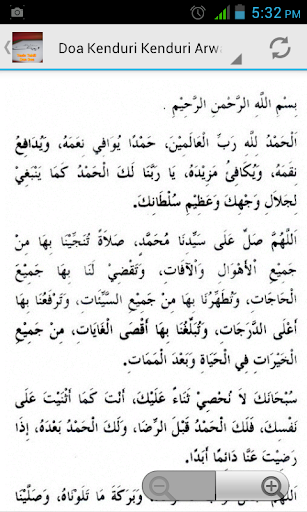 5:32 PM
Doa Kenduri Kenduri Arwa
بِسْمِ اللَّهِ الرَّحْمنِ الرَّحِيْمِ .
الْحَمْدُ لِلَّهِ رَبِّ الْعَالَمِيْنَ، حَمْدًا يُوَافِي نِعَمَهُ، وَيُدَافِعُ
نِقَمَهُ، وَيُكَافِئُ مَزِيْدَهُ، يَا رَبَّنَا لَكَ الْحَمْدُ كَمَا يَنْبَغِيْ
لِجَلاَلِ وَجْهِكَ وَعَظِيْمِ سُلْطَانِكَ.
اللَّهُمَّ صَلِّ عَلَى سَيِّدِنَا مُحَمَّدٍ، صَلاَةً تُنَجِّيْنَا بِهَا مِنْ
جَمِيْعِ الْأَهْوَالِ وَالآفَاتِ، وَتَقْضِيْ لَنَا بِهَا جَمِيْعَ
الْحَاجَاتِ، وَتُطَهِّرُنَا بِهَا مِنْ جَمِيْعِ السَّيِّئَاتِ، وَتَرْفَعُنَا بِهَا
أَعْلَى الدَّرَجَاتِ، وَتُبَلِّغُنَا بِهَا أَقْصَى الْغَايَاتِ، مِنْ جَمِيْعِ
الْخَيْرَاتِ فِي الْحَيَاةِ وَبَعْدَ الْمَمَاتِ.
سُبْحَانَكَ لاَ نُحْصِيْ ثَنَاءً عَلَيْكَ، أَنْتَ كَمَا أَثْنَيْتَ عَلَى
نَفْسِكَ، فَلَكَ الْحَمْدُ قَبْلَ الرِّضَا، وَلَكَ الْحَمْدُ بَعْدَهُ، إِذَا
رَضِيْتَ عَنَّا دَائِمًا أَبَدًا.
وَبَرَكَةَ مَا تَلَوْنَاهُ، وَصَلَّيْنَا